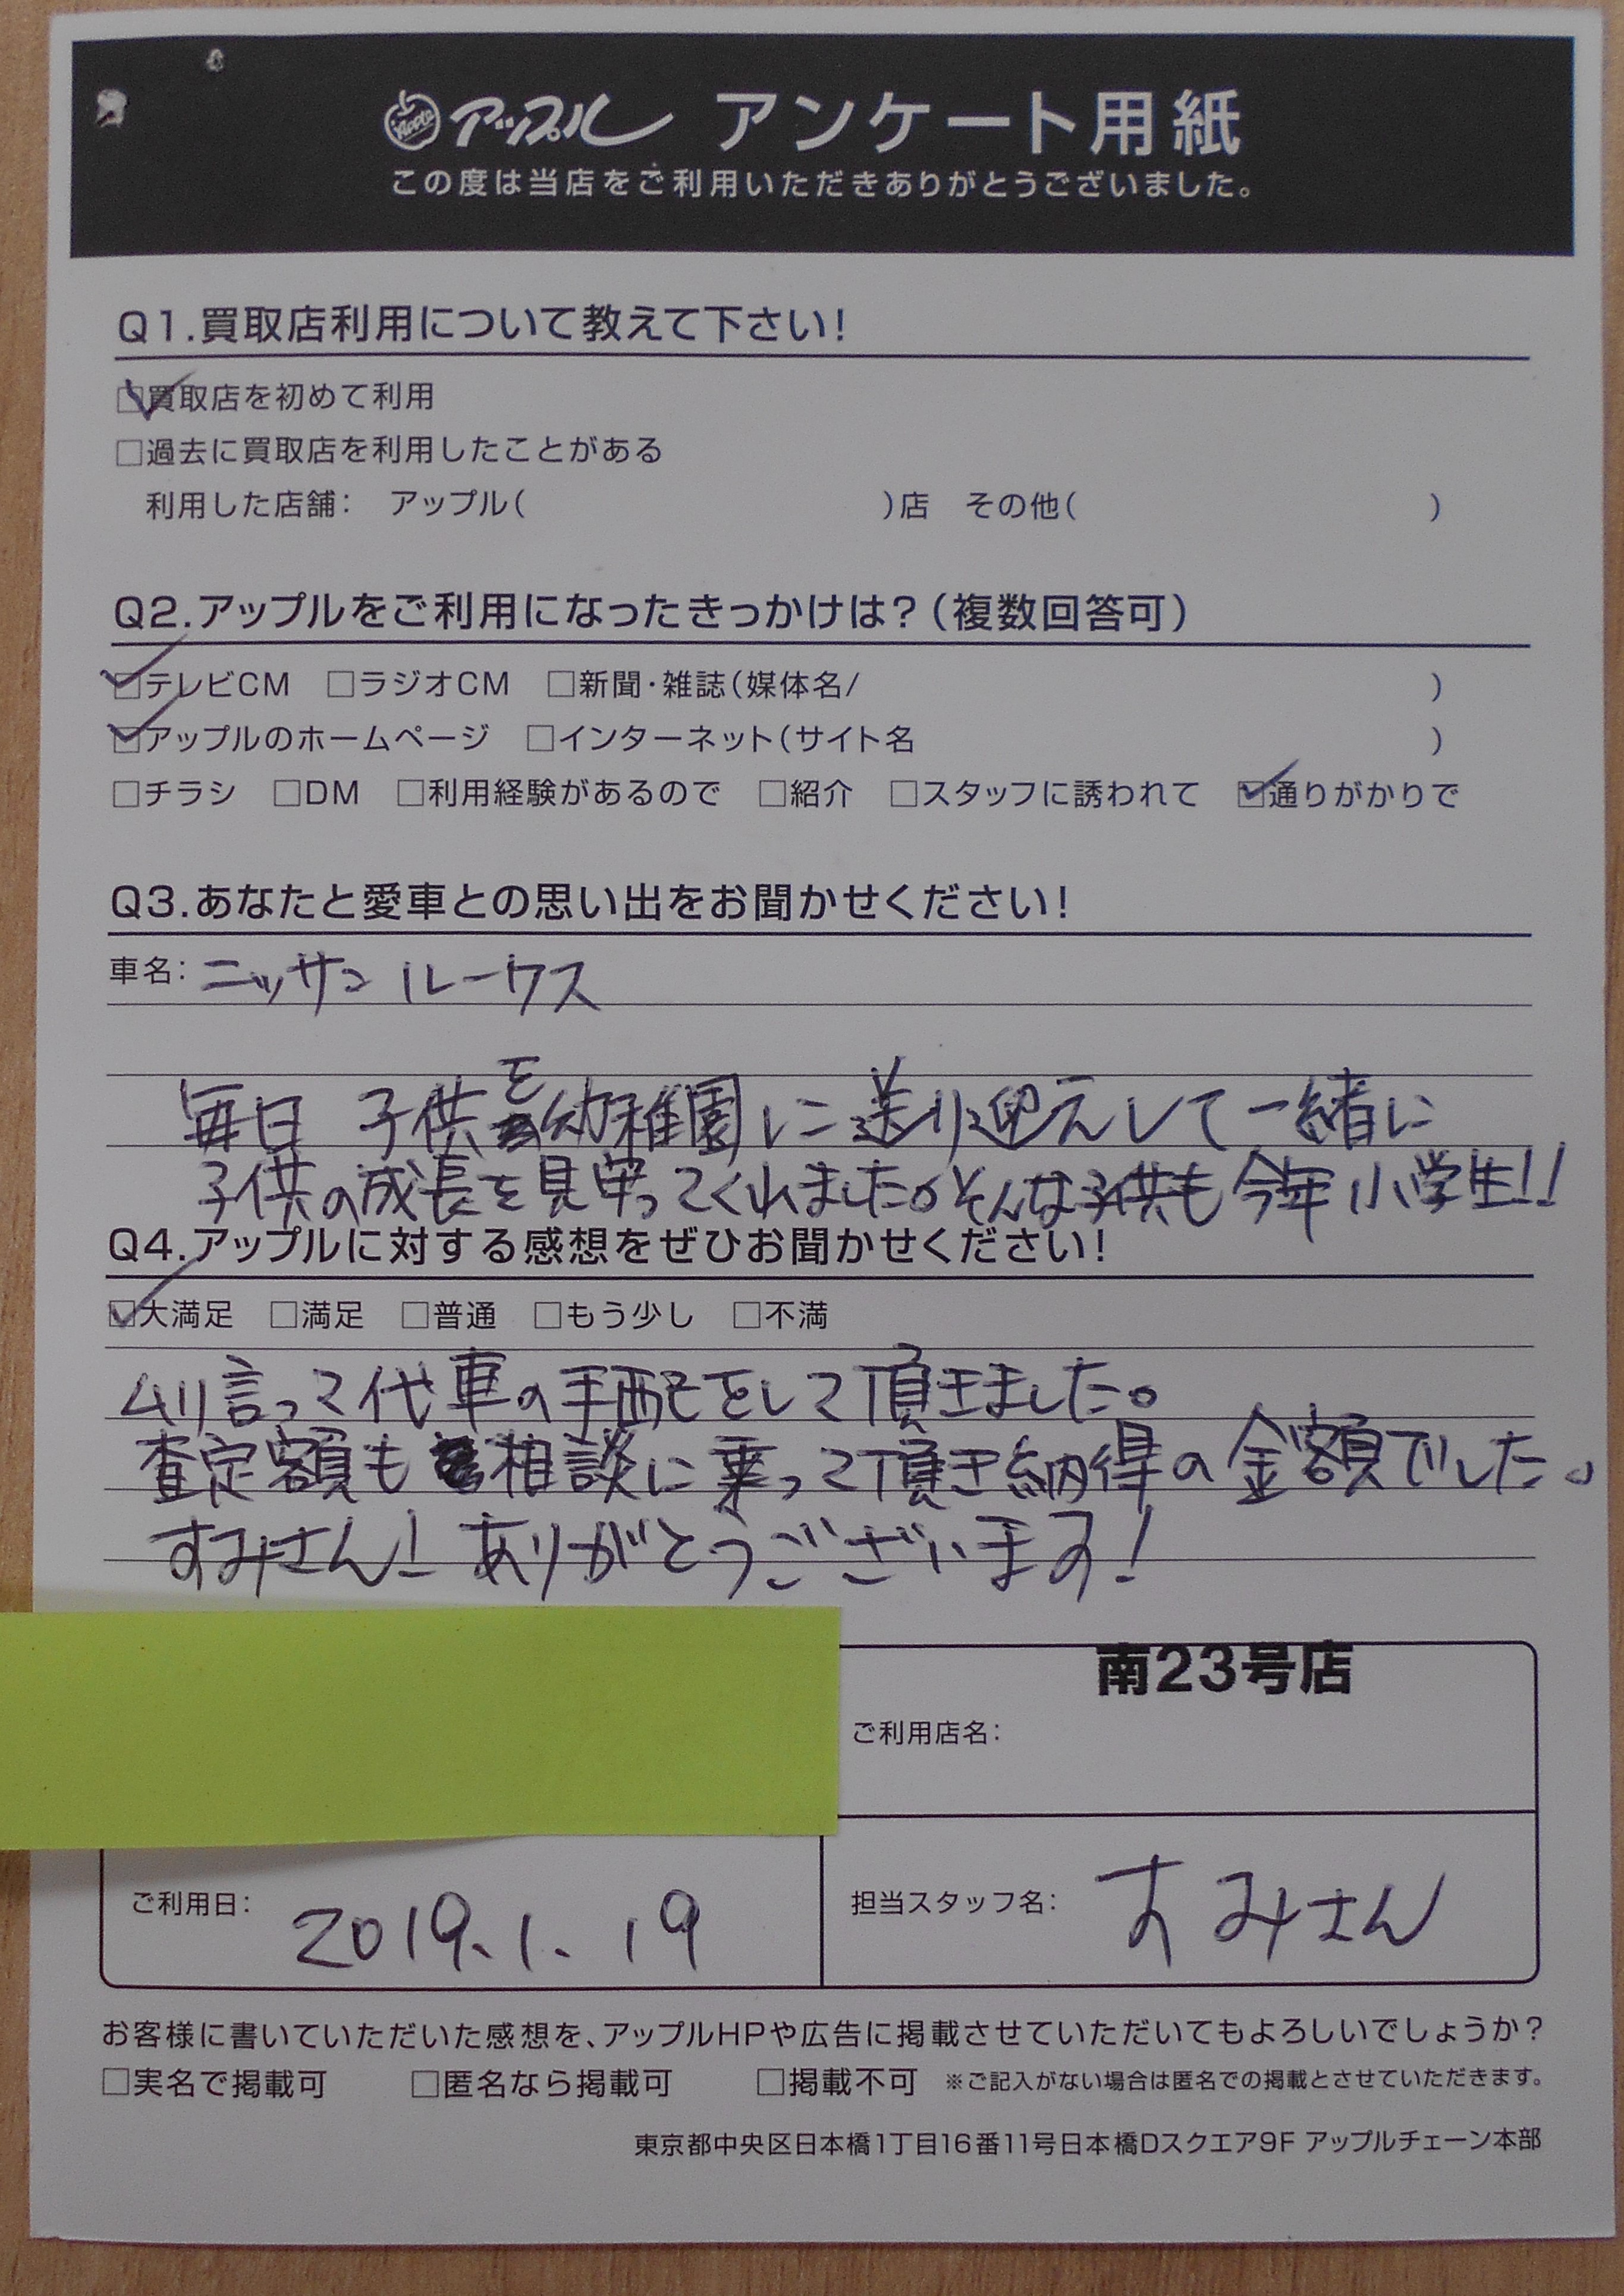 Apple アップル アンケート用紙
この度は当店をご利用いただきありがとうございました。
Q1.買取店利用について教えて下さい!
☑買取店を初めて利用
□過去に買取店を利用したことがある
利用した店舗: アップル( )店 その他( )
Q2.アップルをご利用になったきっかけは?(複数回答可)
☑テレビCM □ラジオCM □新聞・雑誌(媒体名/ )
☑アップルのホームページ □インターネット(サイト名 )
□チラシ □DM □利用経験があるので □紹介 □スタッフに誘われて ☑通りがかりで
Q3.あなたと愛車との思い出をお聞かせください!
車名: ニッサン ルークス
毎日 子供を幼稚園に送り迎えして一緒に
子供の成長を見守ってくれました。そんな子供も今年小学生!!
Q4.アップルに対する感想をぜひお聞かせください!
☑大満足 □満足 □普通 □もう少し □不満
ムリ言って代車の手配をして頂きました。
査定額も相談に乗って頂き納得の金額でした。
すみさん! ありがとうございます!
南23号店
ご利用店名:
ご利用日: 2019.1.19 担当スタッフ名: すみさん
お客様に書いていただいた感想を、アップルHPや広告に掲載させていただいてもよろしいでしょうか?
□実名で掲載可 □匿名なら掲載可 □掲載不可 ※ご記入がない場合は匿名での掲載とさせていただきます。
東京都中央区日本橋1丁目16番11号日本橋Dスクエア9F アップルチェーン本部